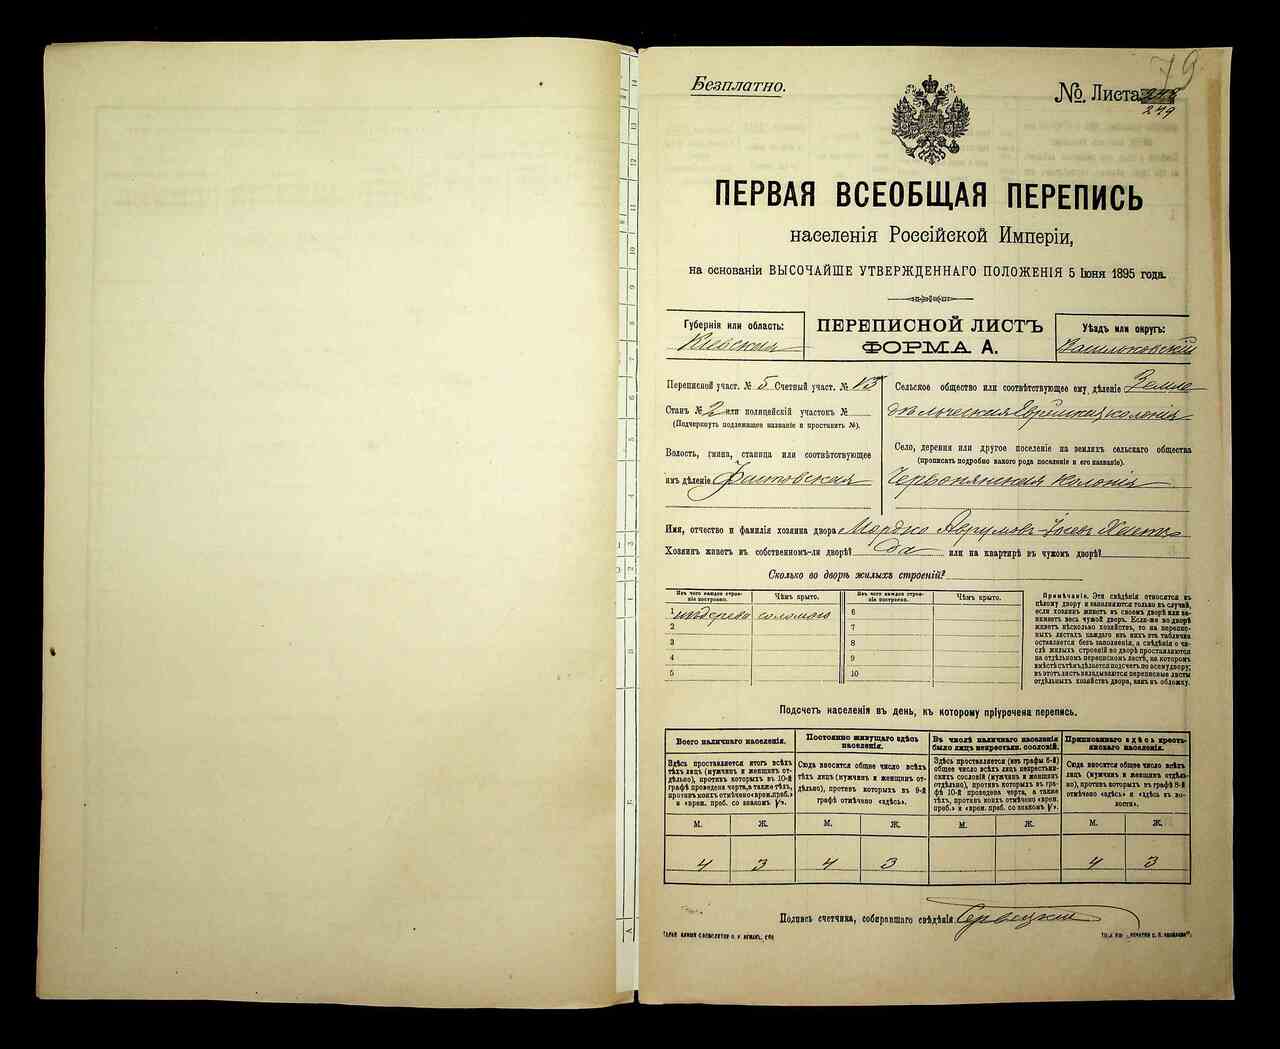 79
Безплатно.
№ Листа 248
249
ПЕРВАЯ ВСЕОБЩАЯ ПЕРЕПИСЬ
населенія Россійской Имперіи,
на основаніи ВЫСОЧАЙШЕ УТВЕРЖДЕННАГО ПОЛОЖЕНІЯ 5 Іюня 1895 года.
Губернія или область:
Кіевская
ПЕРЕПИСНОЙ ЛИСТЪ
ФОРМА А.
Уѣздъ или округъ:
Васильковскій
Переписной участ. № 5 Счетный участ. № 13
Станъ № 2 или полицейскій участокъ №
(Подчеркнуть подлежащее названіе и проставить №).
Волость, гмина, станица или соотвѣтствующее
имъ дѣленіе Фастовская
Сельское общество или соотвѣтствующее ему дѣленіе Земле
дѣльческая Еврейская колонія
Село, деревня или другое поселеніе на земляхъ сельскаго общества
(прописать подробно какого рода поселеніе и его названіе).
Червонянская колонія
Имя, отчество и фамилія хозяина двора Мордко Аврумовъ-Іосевъ
Хозяинъ живетъ въ собственномъ-ли дворѣ? да или на квартирѣ въ чужомъ дворѣ?
Сколько во дворѣ жилыхъ строеній?
Изъ чего каждое строеніе построено.
Чѣмъ крыто.
Изъ чего каждое строеніе построено.
Чѣмъ крыто.
1 изъ дерева соломою
2
3
4
5
6
7
8
9
10
Примѣчаніе. Эти свѣдѣнія относятся къ
цѣлому двору и заполняются только въ случаѣ,
если хозяинъ живетъ въ своемъ дворѣ или за-
нимаетъ весь чужой дворъ. Если-же во дворѣ
живетъ нѣсколько хозяйствъ, то на перепис-
ныхъ листахъ каждаго изъ нихъ эта табличка
оставляется безъ заполненія, а свѣдѣнія о чи-
слѣ жилыхъ строеній во дворѣ проставляются
на отдѣльномъ переписномъ листѣ, на которомъ
вмѣстѣ съ тѣмъ дѣлается подсчетъ по всему двору;
въ этотъ листъ вкладываются переписные листы
отдѣльныхъ хозяйствъ двора, какъ въ обложку.
Подсчетъ населенія въ день, къ которому пріурочена перепись.
Всего наличнаго населенія.
Здѣсь проставляется итогъ всѣхъ
тѣхъ лицъ (мужчинъ и женщинъ от-
дѣльно), противъ которыхъ въ 10-й
графѣ проведена черта, а также тѣхъ,
противъ коихъ отмѣчено «врем. преб.»
и «врем. преб. со знакомъ V».
Постоянно живущаго здѣсь
населенія.
Сюда вносится общее число всѣхъ
тѣхъ лицъ (мужчинъ и женщинъ от-
дѣльно), противъ которыхъ въ 9-й
графѣ отмѣчено «здѣсь».
Въ числѣ наличнаго населенія
было лицъ некрестьянск. сословій.
Здѣсь проставляется (изъ графы 6-й)
общее число всѣхъ лицъ некрестьян-
скихъ сословій (мужчинъ и женщинъ
отдѣльно), противъ которыхъ въ гра-
фѣ 10 проведена черта, а также
тѣхъ, противъ коихъ отмѣчено «врем.
преб.» и «врем. преб. со знакомъ V».
Приписаннаго здѣсь кресть-
янскаго населенія.
Сюда вносится общее число всѣхъ
лицъ (мужчинъ и женщинъ отдѣль-
но), противъ которыхъ въ графѣ 8-й
отмѣчено «здѣсь» и «здѣсь въ во-
лости».
М. Ж. М. Ж. М. Ж. М. Ж.
4 3 4 3 4 3
Подпись счетчика, собиравшаго свѣдѣнія